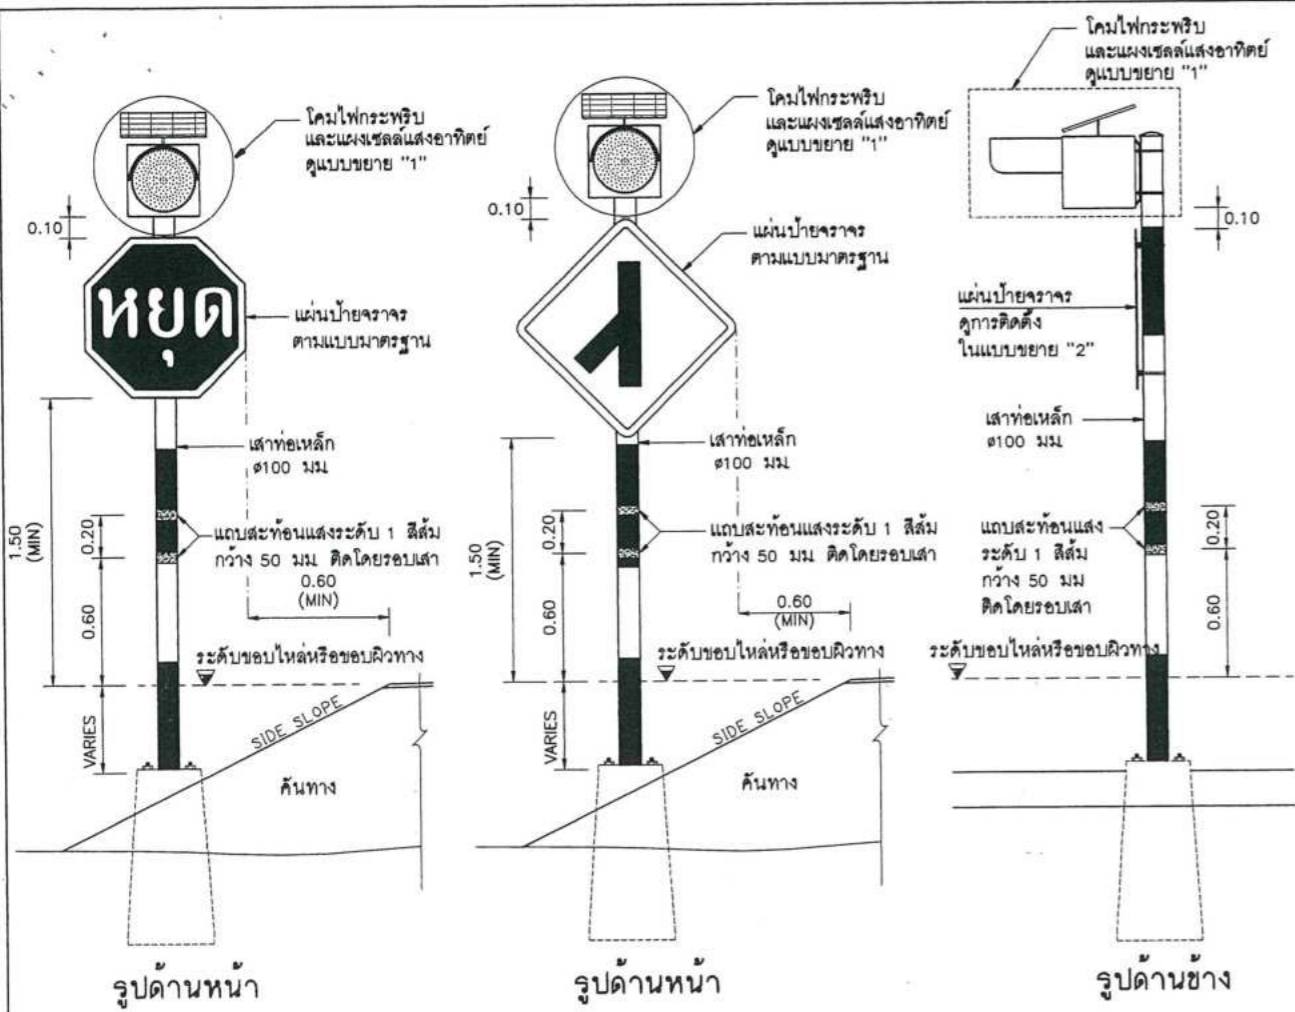 โคมไฟกระพริบ
และแผงเซลล์แสงอาทิตย์
ดูแบบขยาย "1"
0.10
หยุด
แผ่นป้ายจราจร
ตามแบบมาตรฐาน
เสาท่อเหล็ก
ø100 มม.
1.50
(MIN)
0.20
แถบสะท้อนแสงระดับ 1 สีส้ม
กว้าง 50 มม. ติดโดยรอบเสา
0.60
(MIN)
0.60
ระดับขอบไหล่หรือขอบผิวทาง
VARIES
SIDE SLOPE
คันทาง
รูปด้านหน้า
โคมไฟกระพริบ
และแผงเซลล์แสงอาทิตย์
ดูแบบขยาย "1"
0.10
แผ่นป้ายจราจร
ตามแบบมาตรฐาน
เสาท่อเหล็ก
ø100 มม.
1.50
(MIN)
0.20
แถบสะท้อนแสงระดับ 1 สีส้ม
กว้าง 50 มม. ติดโดยรอบเสา
0.60
0.60
(MIN)
ระดับขอบไหล่หรือขอบผิวทาง
VARIES
SIDE SLOPE
คันทาง
รูปด้านหน้า
โคมไฟกระพริบ
และแผงเซลล์แสงอาทิตย์
ดูแบบขยาย "1"
0.10
แผ่นป้ายจราจร
ดูการติดตั้ง
ในแบบขยาย "2"
เสาท่อเหล็ก
ø100 มม.
แถบสะท้อนแสง
ระดับ 1 สีส้ม
กว้าง 50 มม
ติดโดยรอบเสา
0.20
0.60
ระดับขอบไหล่หรือขอบผิวทาง
รูปด้านข้าง